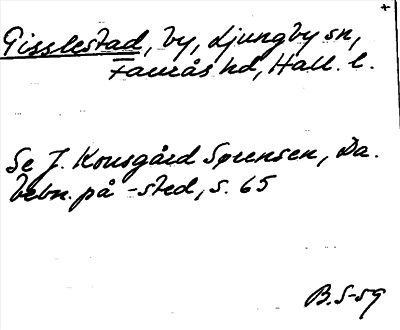 +
Gisslestad, by, Ljungby sn,
Faurås hd, Hall. l.
Se J. Kousgård Sørensen, Da.
bebn. på -sted, s. 65
B.S-59